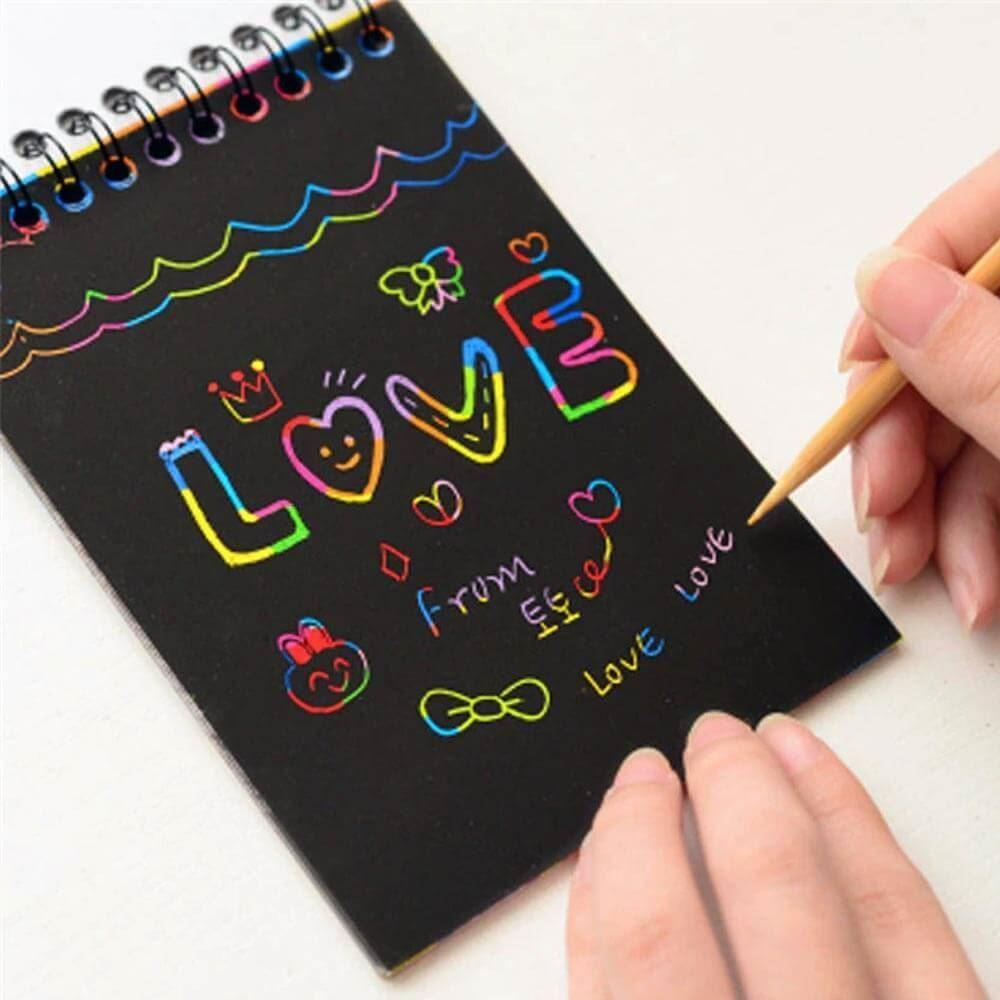 LOVE
From
LOVE
LOVE